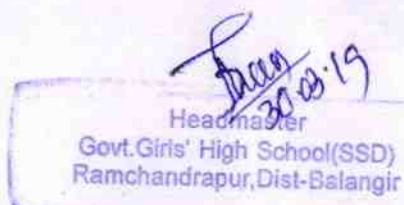 30.03.19
Headmaster
Govt.Girls' High School(SSD)
Ramchandrapur,Dist-Balangir